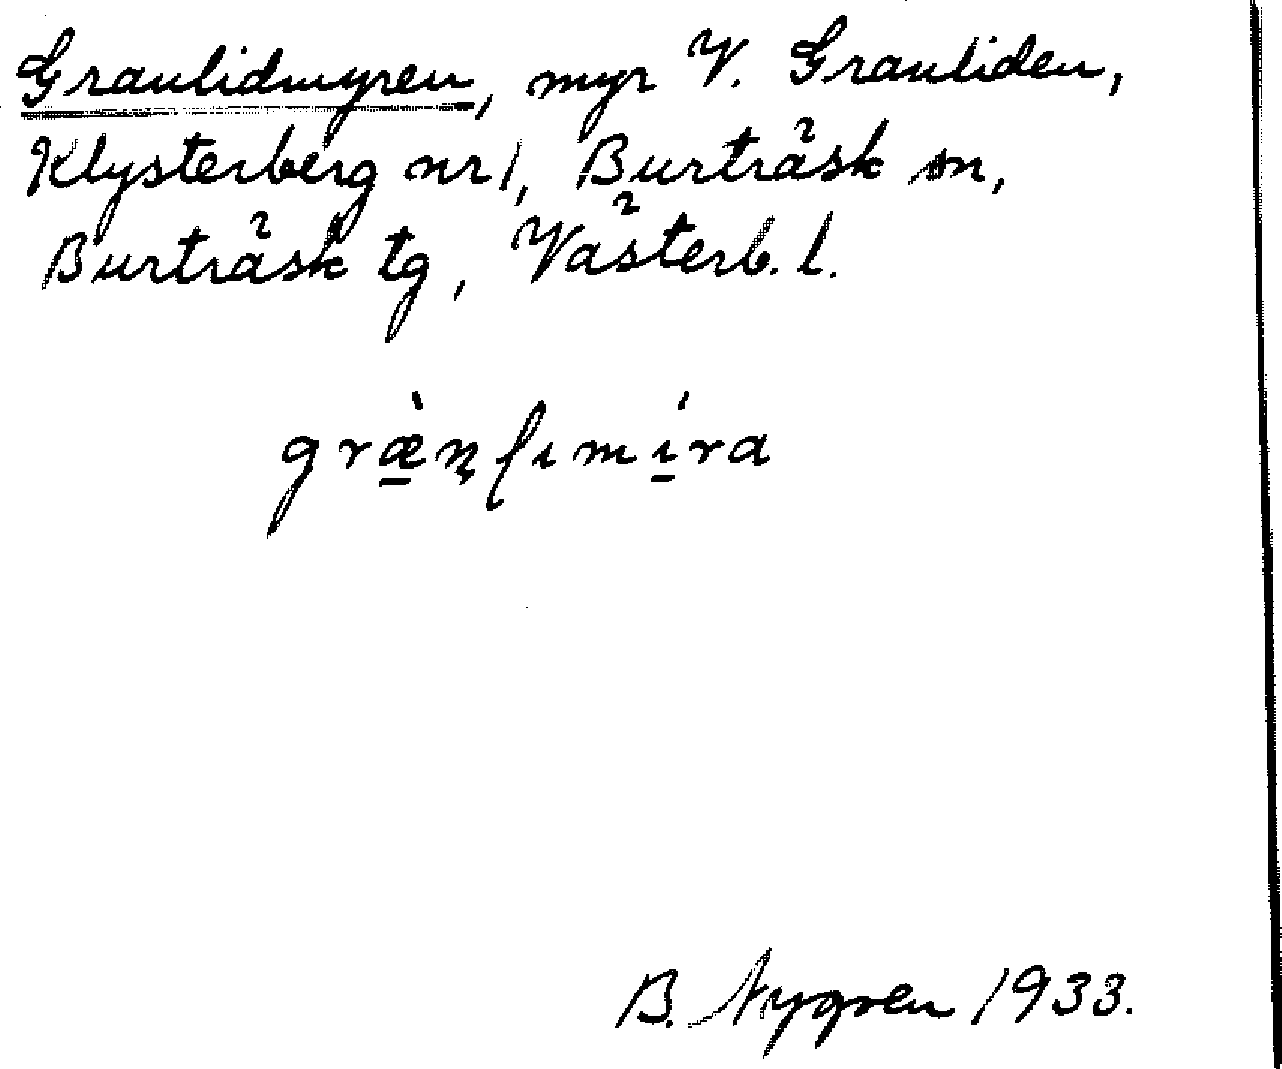 Granlidmyren, myr V. Granliden,
Klysterberg nr 1, Burträsk sn,
Burträsk tg, Västerb. l.
græ̀nlımíra
B. Nygren 1933.